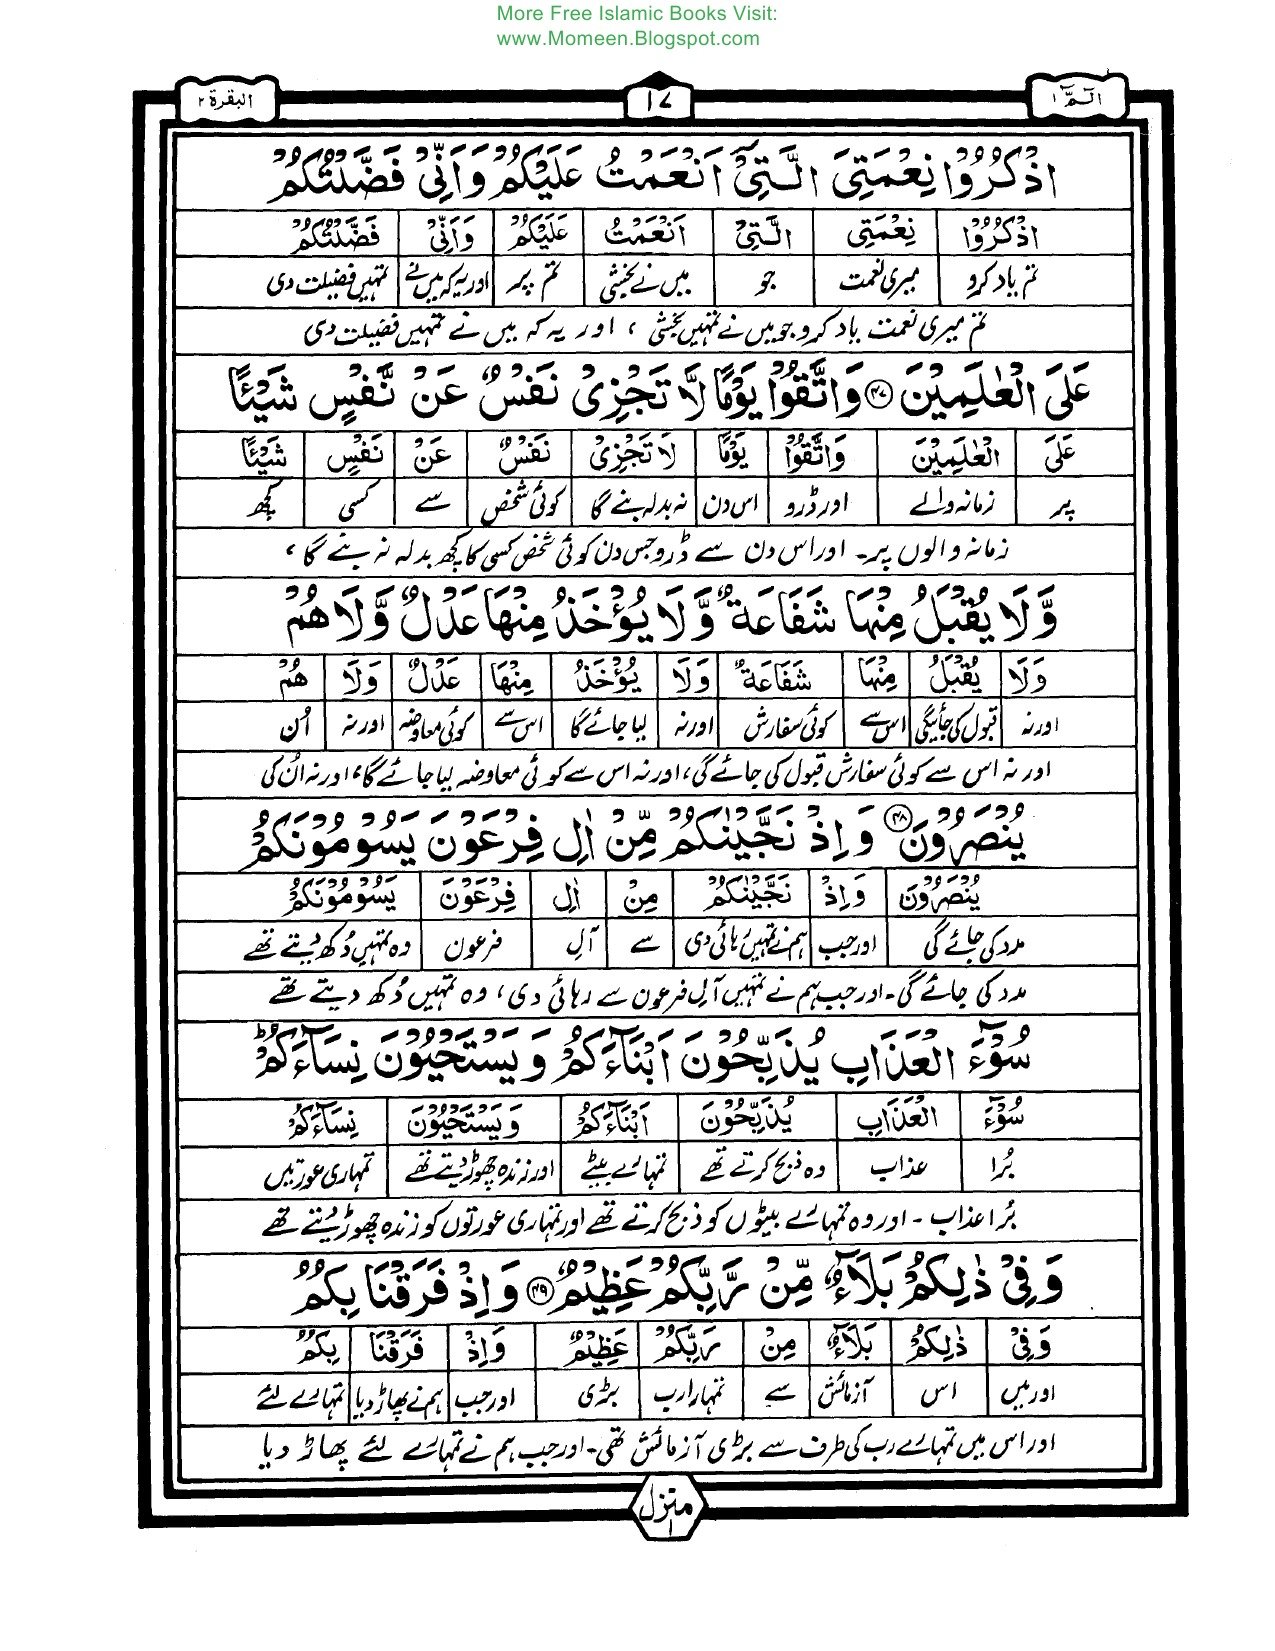 More Free Islamic Books Visit:
www.Momeen.Blogspot.com
الٓمّٓ ۱ ۱۷ البقرۃ ۲
اذْكُرُوْا نِعْمَتِیَ الَّتِیْۤ اَنْعَمْتُ عَلَیْكُمْ وَاَنِّیْ فَضَّلْتُكُمْ
اذْكُرُوْا نِعْمَتِیَ الَّتِیْ اَنْعَمْتُ عَلَیْكُمْ وَاَنِّیْ فَضَّلْتُكُمْ
تم یاد کرو میری نعمت جو میں نے بخشی تم پر اور یہ کہ میں نے تمہیں فضیلت دی
تم میری نعمت یاد کرو جو میں نے تمہیں بخشی ، اور یہ کہ میں نے تمہیں فضیلت دی
عَلَی الْعٰلَمِیْنَ ۴۷ وَاتَّقُوْا یَوْمًا لَّا تَجْزِیْ نَفْسٌ عَنْ نَّفْسٍ شَیْـًٔا
عَلَی الْعٰلَمِیْنَ وَاتَّقُوْا یَوْمًا لَا تَجْزِیْ نَفْسٌ عَنْ نَفْسٍ شَیْـًٔا
پر زمانہ والے اور ڈرو اس دن نہ بدلہ بنے گا کوئی شخص سے کسی کچھ
زمانہ والوں پر۔ اور اس دن سے ڈرو جس دن کوئی شخص کسی کا کچھ بدلہ نہ بنے گا ،
وَّلَا یُقْبَلُ مِنْهَا شَفَاعَةٌ وَّلَا یُؤْخَذُ مِنْهَا عَدْلٌ وَّلَا هُمْ
وَلَا یُقْبَلُ مِنْهَا شَفَاعَةٌ وَلَا یُؤْخَذُ مِنْهَا عَدْلٌ وَلَا هُمْ
اور نہ قبول کی جائیگی اس سے کوئی سفارش اور نہ لیا جائے گا اس سے کوئی معاوضہ اور نہ اُن
اور نہ اس سے کوئی سفارش قبول کی جائے گی، اور نہ اس سے کوئی معاوضہ لیا جائے گا، اور نہ اُن کی
یُنْصَرُوْنَ ۴۸ وَاِذْ نَجَّیْنٰكُمْ مِّنْ اٰلِ فِرْعَوْنَ یَسُوْمُوْنَكُمْ
یُنْصَرُوْنَ وَاِذْ نَجَّیْنٰكُمْ مِنْ اٰلِ فِرْعَوْنَ یَسُوْمُوْنَكُمْ
مدد کی جائے گی اور جب ہم نے تمہیں رہائی دی سے آلِ فرعون وہ تمہیں دُکھ دیتے تھے
مدد کی جائے گی۔ اور جب ہم نے تمہیں آلِ فرعون سے رہائی دی، وہ تمہیں دُکھ دیتے تھے
سُوْٓءَ الْعَذَابِ یُذَبِّحُوْنَ اَبْنَآءَكُمْ وَیَسْتَحْیُوْنَ نِسَآءَكُمْ ؕ
سُوْٓءَ الْعَذَابِ یُذَبِّحُوْنَ اَبْنَآءَكُمْ وَیَسْتَحْیُوْنَ نِسَآءَكُمْ
بُرا عذاب وہ ذبح کرتے تھے تمہارے بیٹے اور زندہ چھوڑ دیتے تھے تمہاری عورتیں
بُرا عذاب ۔ اور وہ تمہارے بیٹوں کو ذبح کرتے تھے اور تمہاری عورتوں کو زندہ چھوڑ دیتے تھے
وَفِیْ ذٰلِكُمْ بَلَآءٌ مِّنْ رَّبِّكُمْ عَظِیْمٌ ۴۹ وَاِذْ فَرَقْنَا بِكُمُ
وَفِیْ ذٰلِكُمْ بَلَآءٌ مِنْ رَبِّكُمْ عَظِیْمٌ وَاِذْ فَرَقْنَا بِكُمُ
اور میں اس آزمائش سے تمہارا رب بڑی اور جب ہم نے پھاڑ دیا تمہارے لئے
اور اس میں تمہارے رب کی طرف سے بڑی آزمائش تھی۔ اور جب ہم نے تمہارے لئے پھاڑ دیا
منزل ۱